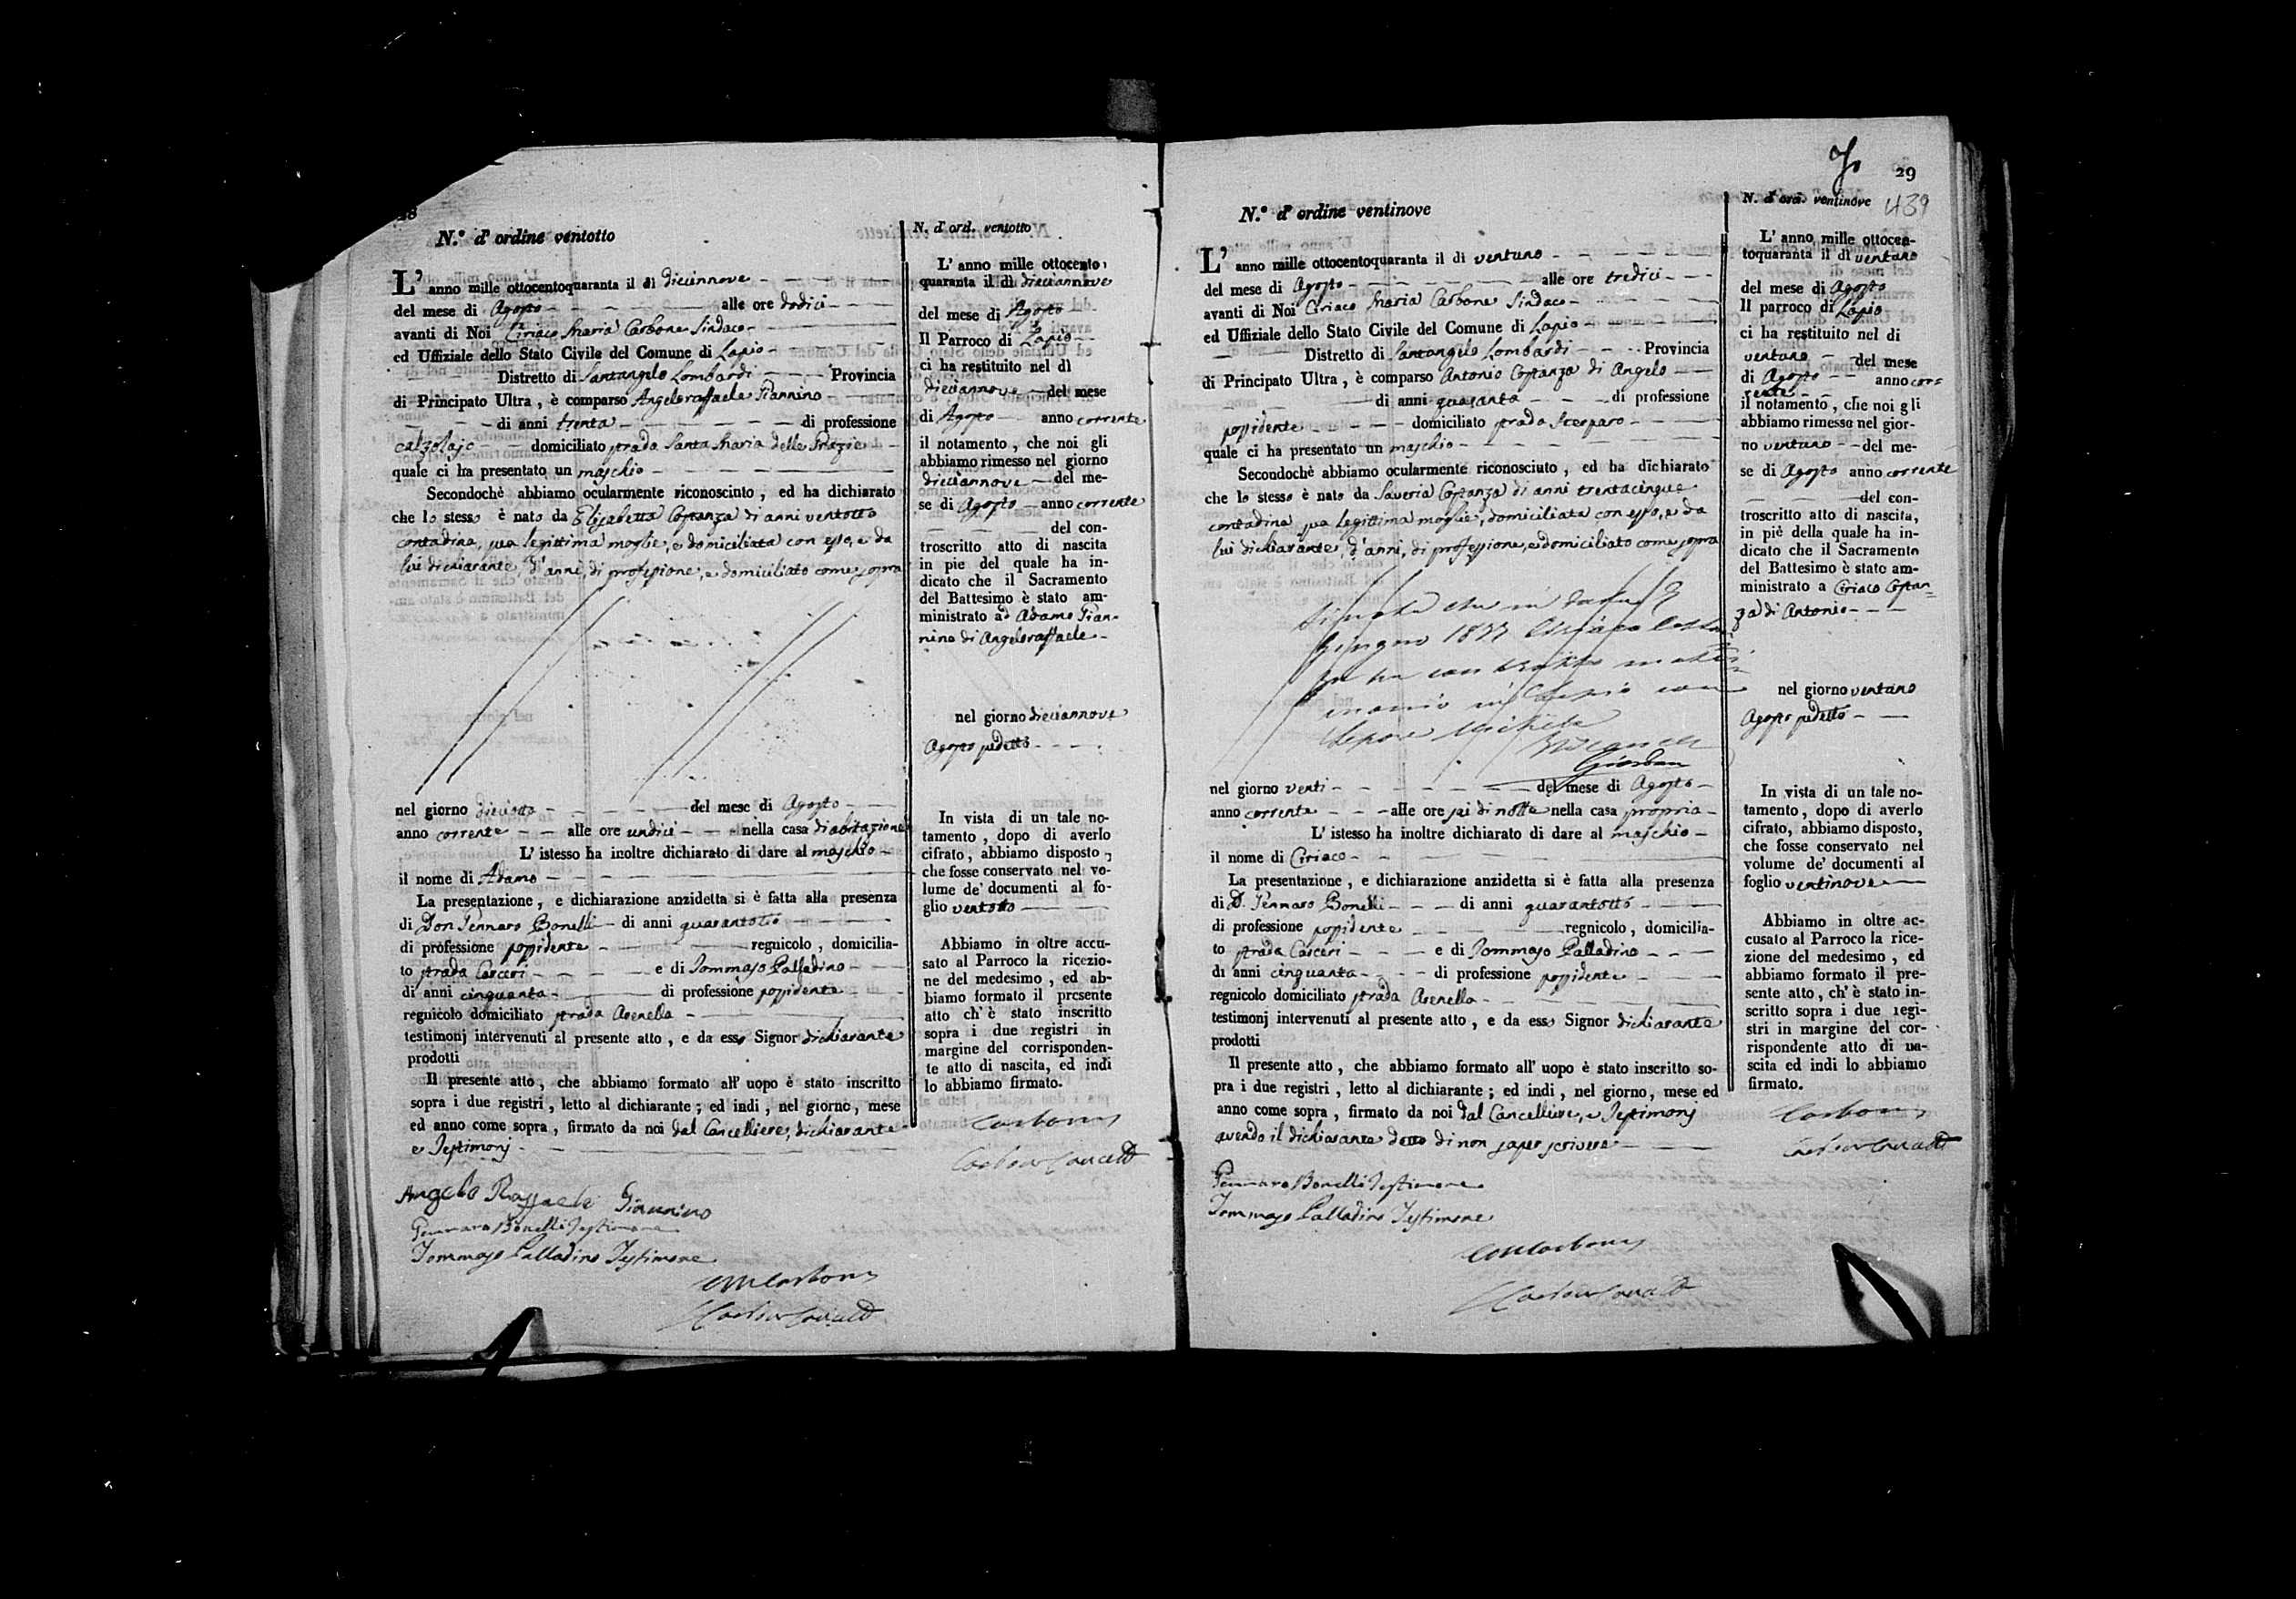 N.º d' ordine ventotto
L' anno mille ottocentoquaranta il dì diciannove
del mese di Agosto alle ore dodici
avanti di Noi Ciriaco Maria Carbone Sindaco
ed Uffiziale dello Stato Civile del Comune di Lapio
Distretto di Santangelo Lombardi Provincia
di Principato Ultra, è comparso Angeloraffaele Giannino
di anni trenta di professione
calzolajo domiciliato strada Santa Maria delle Grazie
quale ci ha presentato un maschio
Secondochè abbiamo ocularmente riconosciuto, ed ha dichiarato
che lo stesso è nato da Elisabetta Costanza di anni ventotto
contadina, sua legittima moglie, e domiciliata con esso, e da
lui dichiarante, d'anni, di professione, e domiciliato come sopra
nel giorno dieciotto del mese di Agosto
anno corrente alle ore undici nella casa di abitazione
L' istesso ha inoltre dichiarato di dare al maschio
il nome di Adamo
La presentazione, e dichiarazione anzidetta si è fatta alla presenza
di Don Gennaro Bonelli di anni quarantotto
di professione possidente regnicolo, domicilia-
to strada Carceri e di Tommaso Palladino
di anni cinquanta di professione possidente
regnicolo domiciliato strada Arenella
testimonj intervenuti al presente atto, e da esso Signor dichiarante
prodotti
Il presente atto, che abbiamo formato all' uopo è stato inscritto
sopra i due registri, letto al dichiarante; ed indi, nel giorno, mese
ed anno come sopra, firmato da noi dal Cancelliere, dichiarante
e Testimonj
Angelo Raffaele Giannino
Gennaro Bonelli Testimone
Tommaso Palladino Testimone
CMCarbone
N. d' ord. ventotto
L' anno mille ottocento
quaranta il dì dieciannove
del mese di Agosto
Il Parroco di Lapio
ci ha restituito nel dì
dieciannove del mese
di Agosto anno corrente
il notamento, che noi gli
abbiamo rimesso nel giorno
dieciannove del me-
se di Agosto anno corrente
del con-
troscritto atto di nascita
in pie del quale ha in-
dicato che il Sacramento
del Battesimo è stato am-
ministrato ad Adamo Gian-
nino di Angeloraffaele
nel giorno dieciannove
Agosto sudetto
In vista di un tale no-
tamento, dopo di averlo
cifrato, abbiamo disposto,
che fosse conservato nel vo-
lume de' documenti al fo-
glio ventotto
Abbiamo in oltre accu-
sato al Parroco la ricezio-
ne del medesimo, ed ab-
biamo formato il presente
atto ch' è stato inscritto
sopra i due registri in
margine del corrisponden-
te atto di nascita, ed indi
lo abbiamo firmato.
Carbone
29
439
N.º d' ordine ventinove
L' anno mille ottocentoquaranta il dì ventuno
del mese di Agosto alle ore tredici
avanti di Noi Ciriaco Maria Carbone Sindaco
ed Uffiziale dello Stato Civile del Comune di Lapio
Distretto di Santangelo Lombardi Provincia
di Principato Ultra, è comparso Antonio Costanza di Angelo
di anni quaranta di professione
possidente domiciliato strada Scesparo
quale ci ha presentato un maschio
Secondochè abbiamo ocularmente riconosciuto, ed ha dichiarato
che lo stesso è nato da Saveria Costanza di anni trentacinque
contadina sua legittima moglie, domiciliata con esso, e da
lui dichiarante, d'anni, di professione, e domiciliato come sopra
Si nota che in data
Giugno 1877 Ciriaco Costan
za ha contratto matri
monio in Lapio con
Lepore Michela
nel giorno venti del mese di Agosto
anno corrente alle ore sei di notte nella casa propria
L' istesso ha inoltre dichiarato di dare al maschio
il nome di Ciriaco
La presentazione, e dichiarazione anzidetta si è fatta alla presenza
di D. Gennaro Bonelli di anni quarantotto
di professione possidente regnicolo, domicilia-
to strada Carceri e di Tommaso Palladino
di anni cinquanta di professione possidente
regnicolo domiciliato strada Arenella
testimonj intervenuti al presente atto, e da esso Signor dichiarante
prodotti
Il presente atto, che abbiamo formato all' uopo è stato inscritto so-
pra i due registri, letto al dichiarante; ed indi, nel giorno, mese ed
anno come sopra, firmato da noi dal Cancelliere, e Testimonj
avendo il dichiarante detto di non saper scrivere
Gennaro Bonelli Testimone
Tommaso Palladino Testimone
CMCarbone
N. d' ord. ventinove
L' anno mille ottocen-
toquaranta il dì ventuno
del mese di Agosto
Il parroco di Lapio
ci ha restituito nel di
ventuno del mese
di Agosto anno cor=
rente
il notamento, che noi gli
abbiamo rimesso nel gior-
no ventuno del me-
se di Agosto anno corrente
del con-
troscritto atto di nascita,
in piè della quale ha in-
dicato che il Sacramento
del Battesimo è stato am-
ministrato a Ciriaco Costan=
za di Antonio
nel giorno ventuno
Agosto sudetto
In vista di un tale no-
tamento, dopo di averlo
cifrato, abbiamo disposto,
che fosse conservato nel
volume de' documenti al
foglio ventinove
Abbiamo in oltre ac-
cusato al Parroco la rice-
zione del medesimo, ed
abbiamo formato il pre-
sente atto, ch' è stato in-
scritto sopra i due regi-
stri in margine del cor-
rispondente atto di na-
scita ed indi lo abbiamo
firmato.
Carbone